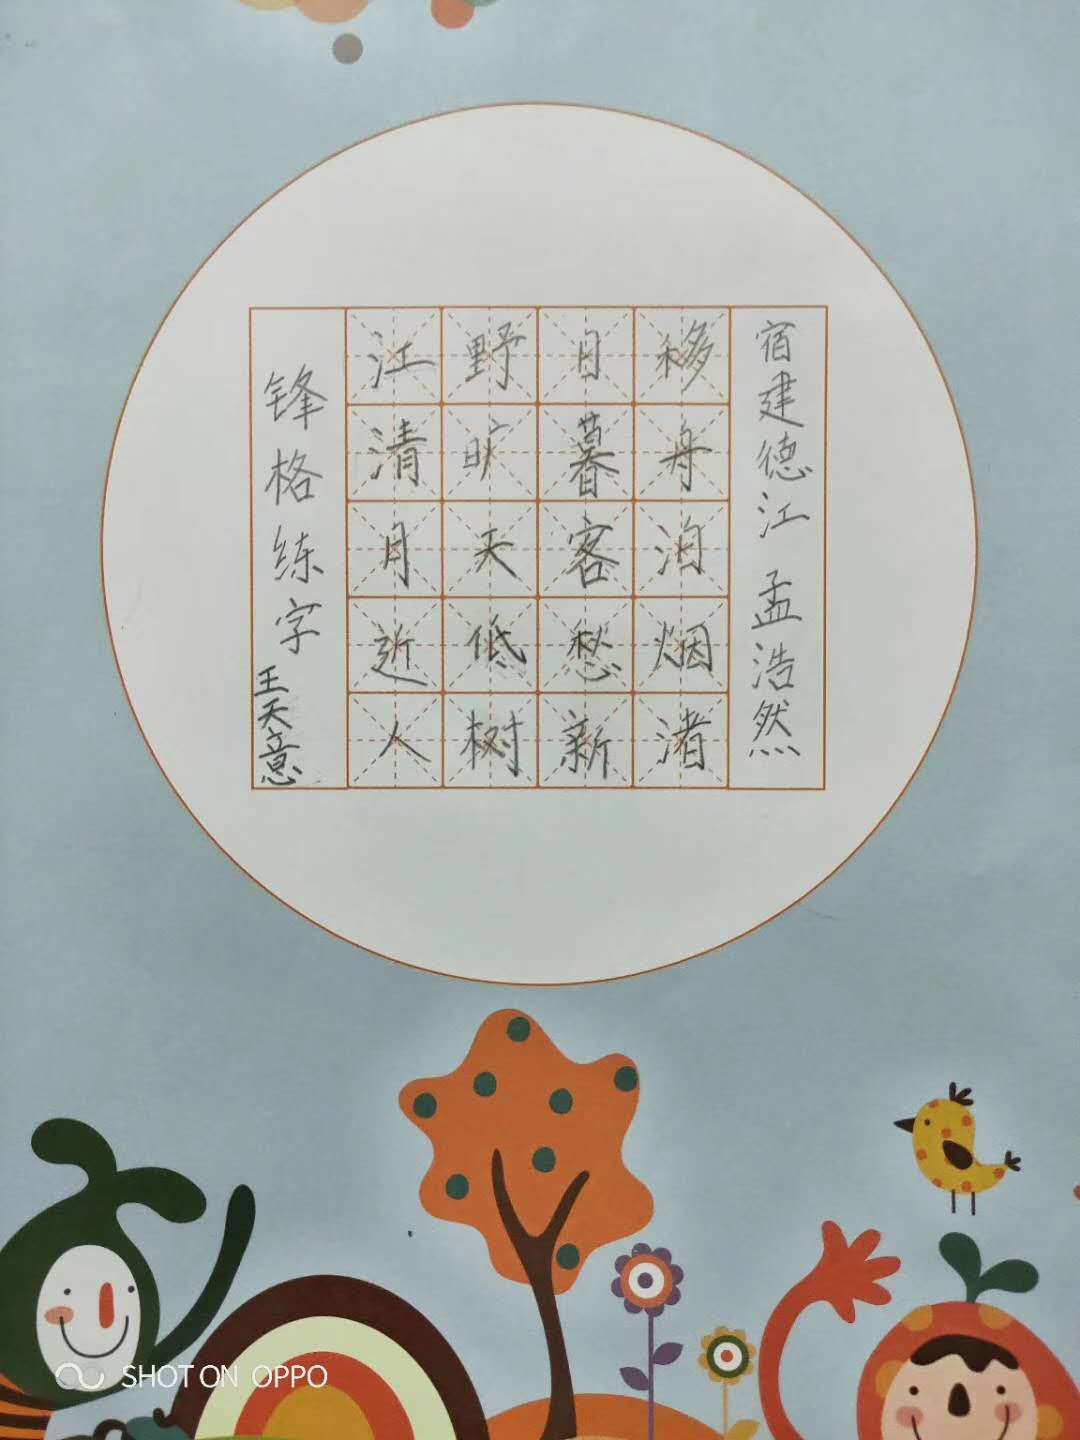 宿建德江 孟浩然
移舟泊烟渚
日暮客愁新
野旷天低树
江清月近人
锋格练字
王天意
SHOT ON OPPO